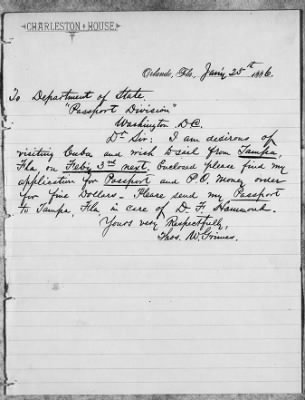 CHARLESTON HOUSE.
Orlando, Fla. Jan'y 25th 1886.
To Department of State,
"Passport Division"
Washington D.C.
Dr Sir: I am desirous of
visiting Cuba and wish to sail from Tampa,
Fla, on Feb'y 3rd next. Enclosed please find my
application for Passport and P.O. Money order
for five Dollars. Please send my Passport
to Tampa, Fla, in care of D. F. Hammond.
Yours very Respectfully,
Thos. W. Grimes.